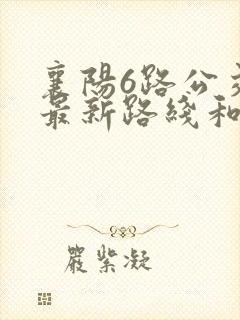 襄陽6路公交
最新路綫和
嚴紫凝